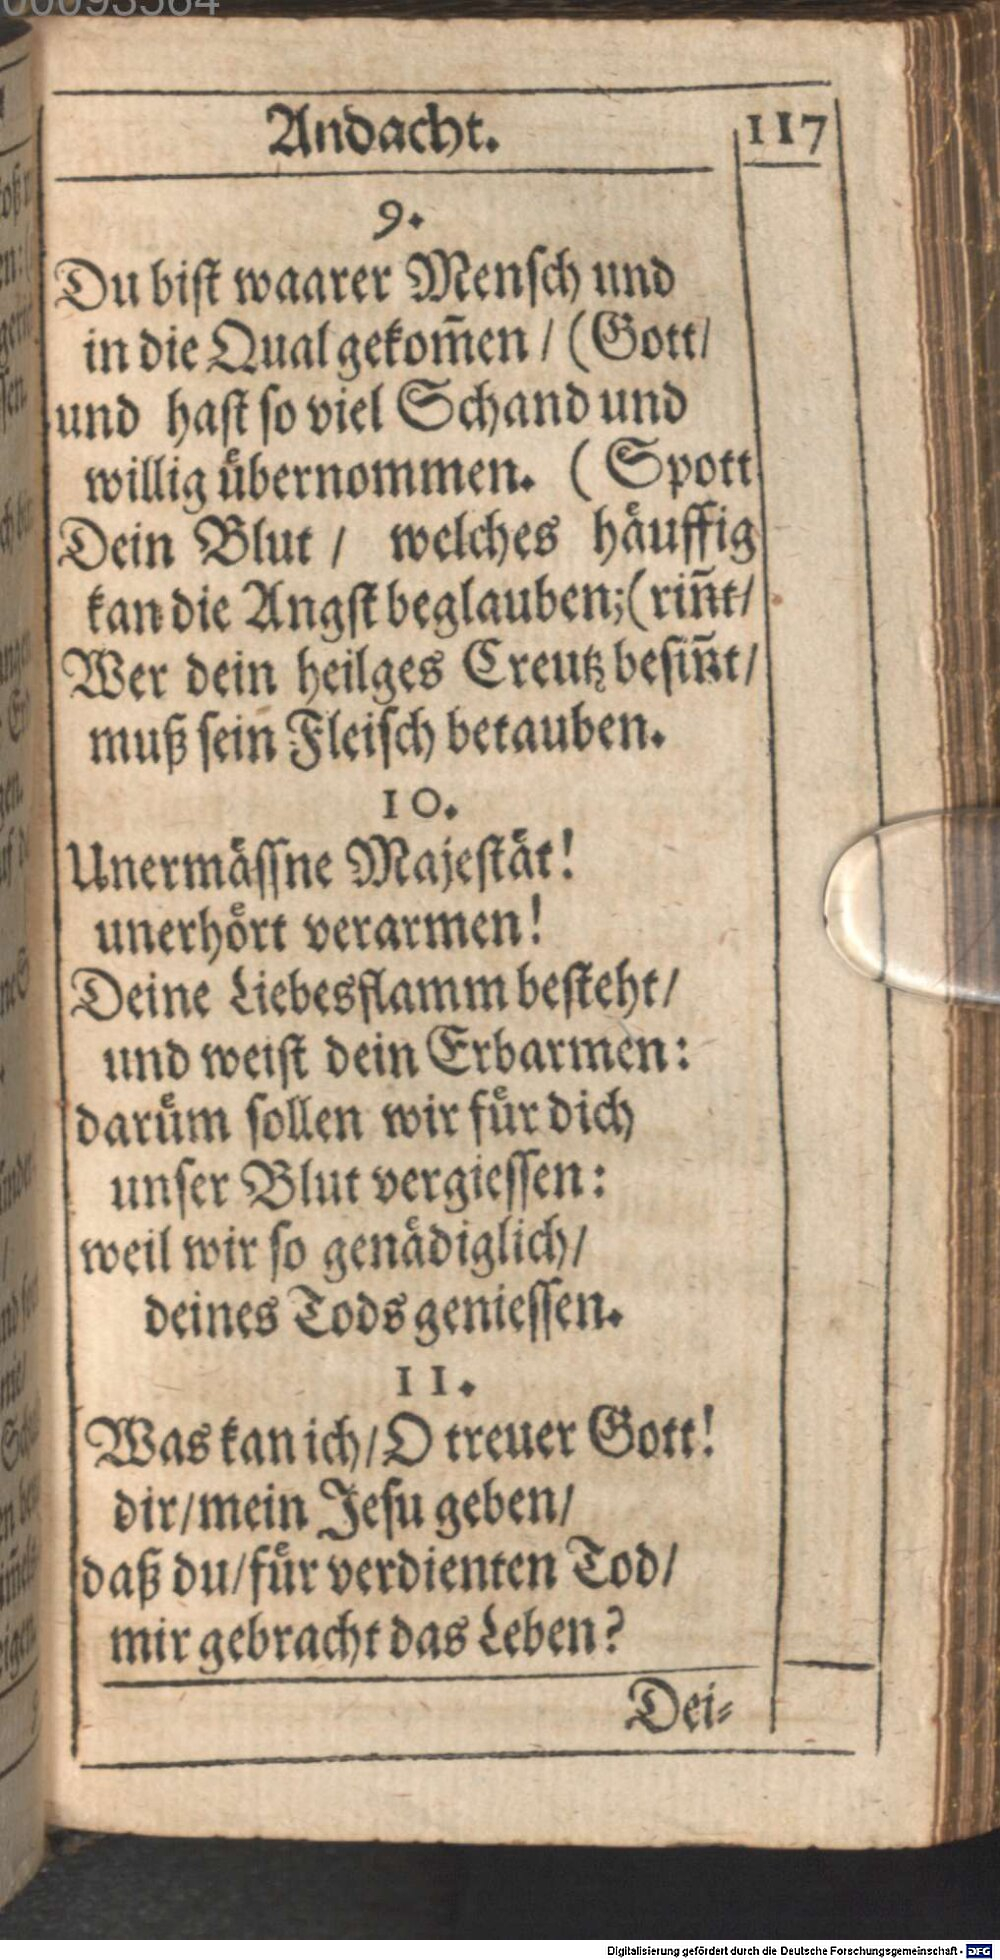 00093564
Andacht. 117
9.
Du biſt waarer Menſch und
in die Qual gekom̃en / (Gott /
und haſt ſo viel Schand und
willig uͤbernommen. (Spott
Dein Blut / welches haͤuffig
kan die Angſt beglauben; (rin̄t /
Wer dein heilges Creutz beſin̄t /
muß ſein Fleiſch betauben.
10.
Unermaͤſſne Majeſtaͤt!
unerhoͤrt verarmen!
Deine Liebesflamm beſteht /
und weiſt dein Erbarmen:
daruͤm ſollen wir fuͤr dich
unſer Blut vergieſſen:
weil wir ſo genaͤdiglich /
deines Tods genieſſen.
11.
Was kan ich / O treuer Gott!
dir / mein Jeſu geben /
daß du / fuͤr verdienten Tod /
mir gebracht das Leben?
Dei⸗
Digitalisierung gefördert durch die Deutsche Forschungsgemeinschaft - DFG